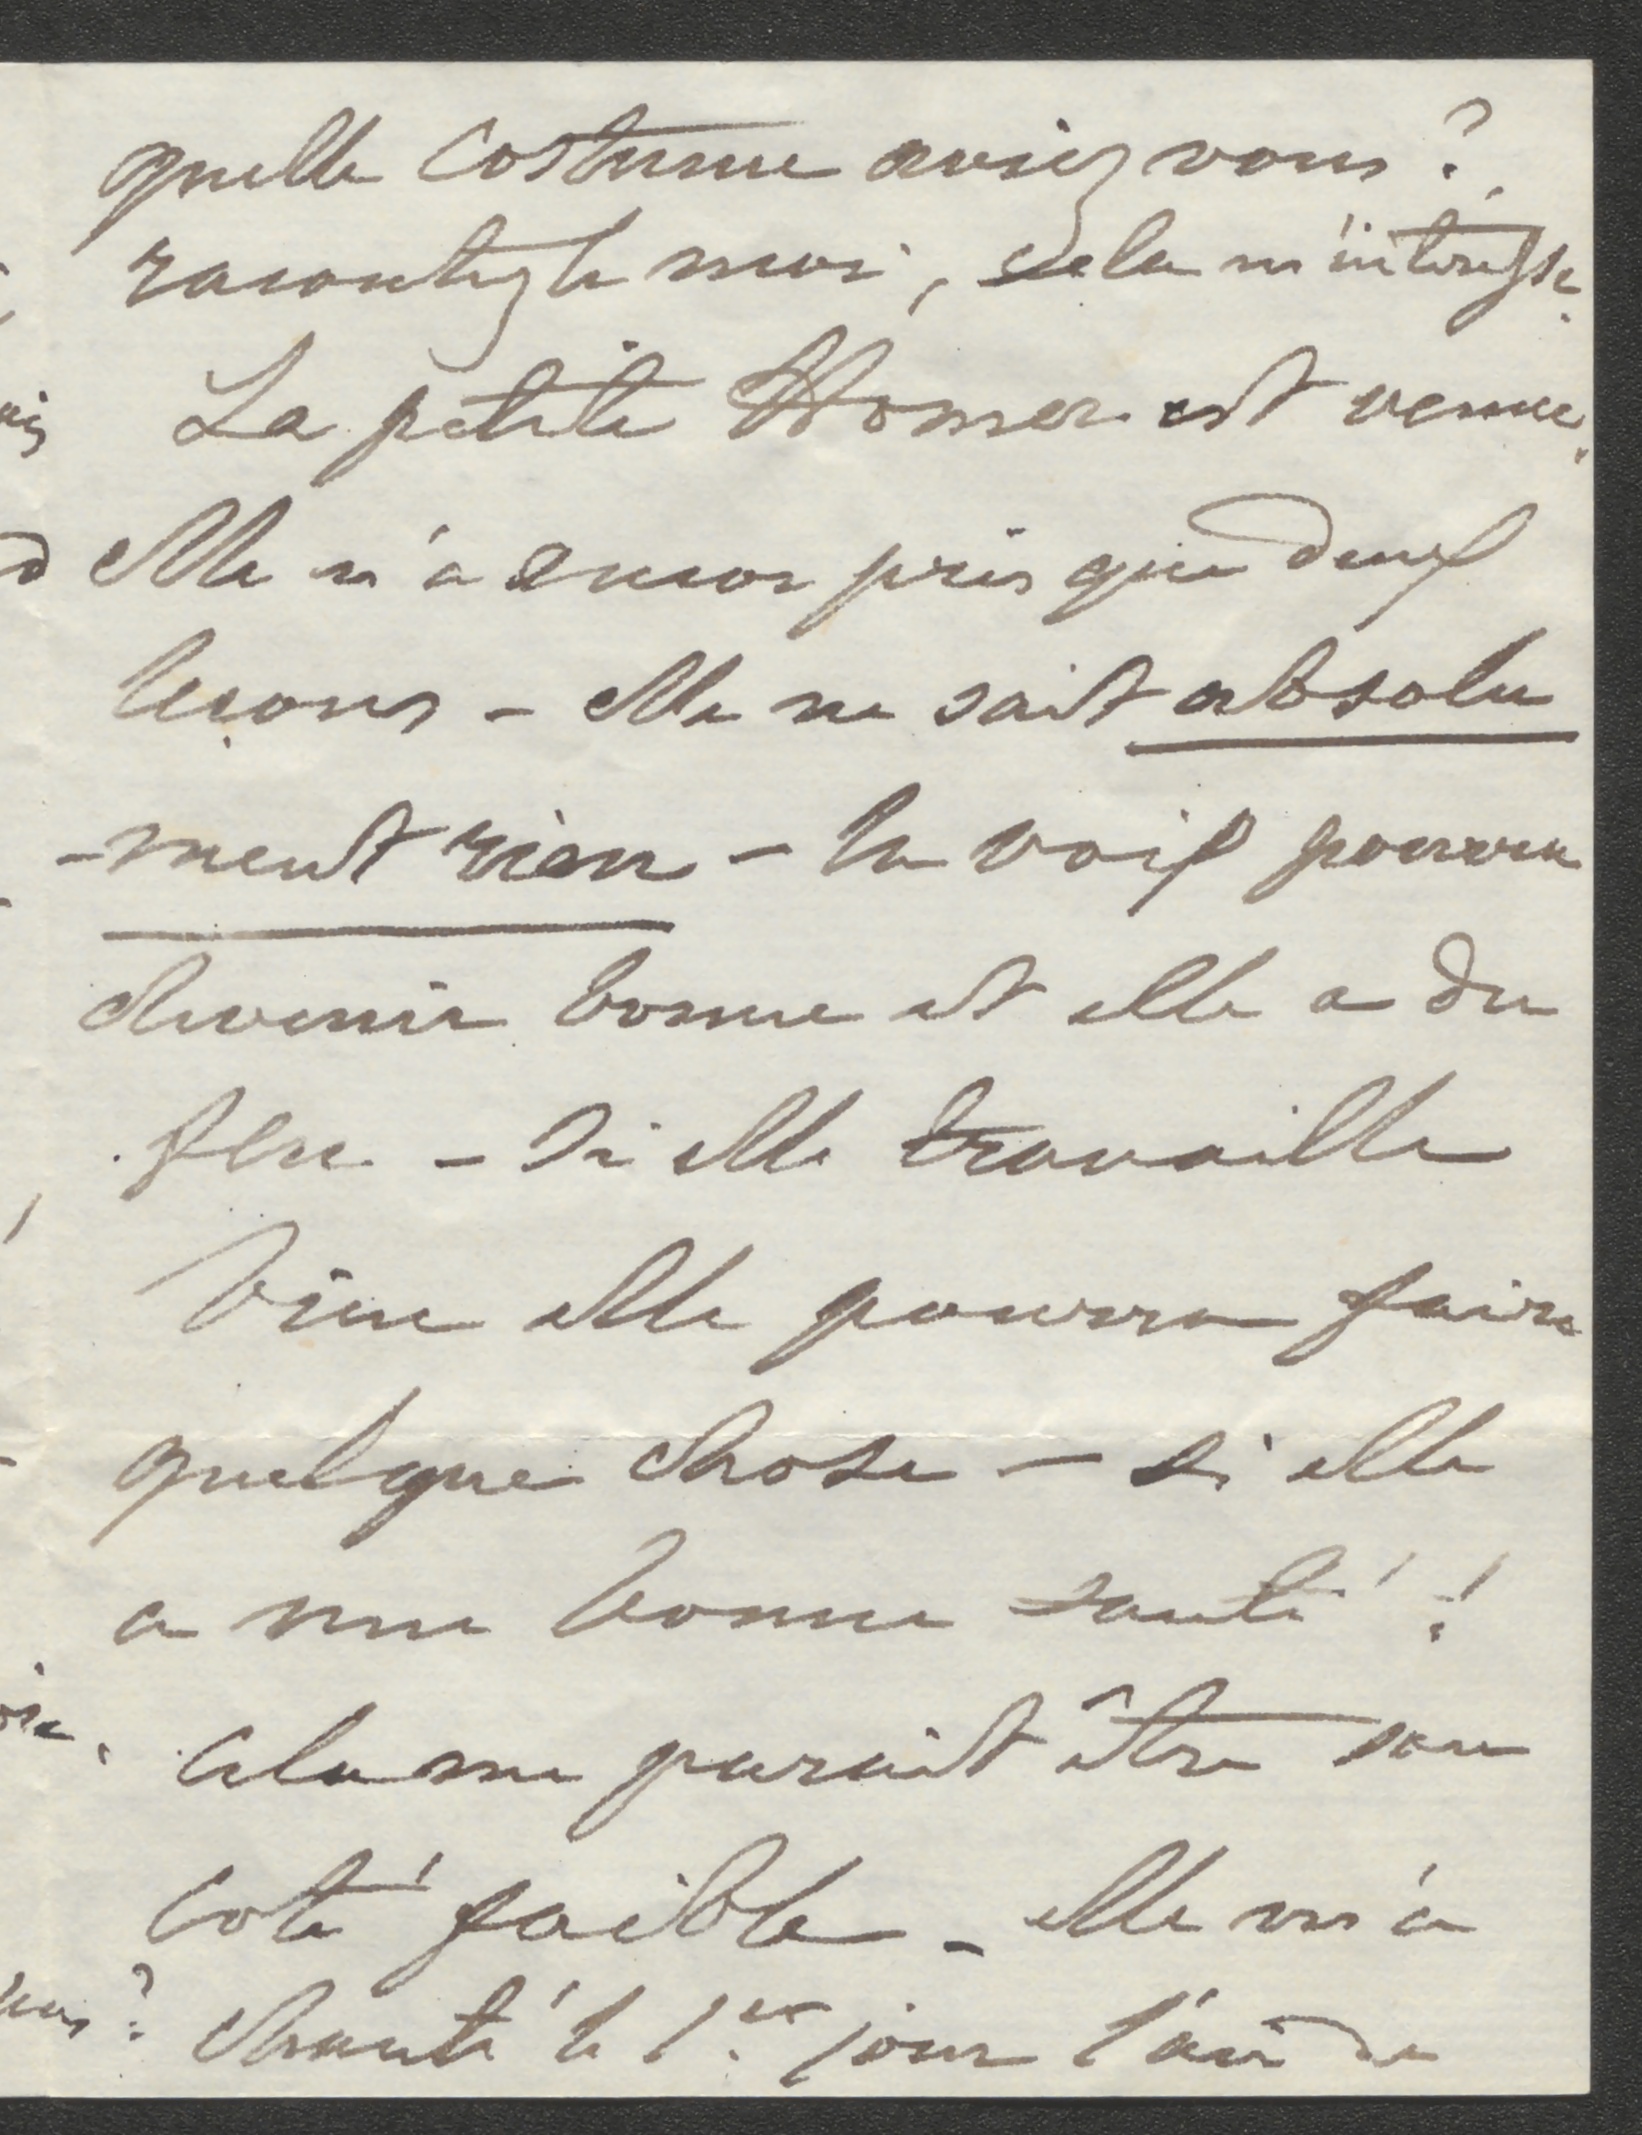 quelle costume aviez vous ?
racontez le moi, cela m'intéresse.
La petite est venue.
elle n'a encor pris que deux
leçons – elle ne sait absolu
-ment rien – la voix pourra
devenir bonne et elle a du
feu – Si elle travaille
bien elle pourra faire
quelque chose – si elle
a une bonne santé !
cela me parait être son
coté faible – elle m'a
chanté le 1er jour l'air de